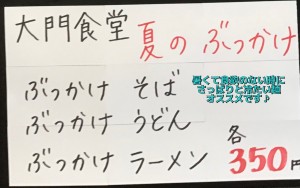 大門食堂 夏の ぶっかけ
ぶっかけ そば
暑くて食欲のない時に
さっぱりと冷たい麺
オススメです♪
ぶっかけ うどん
ぶっかけ ラーメン
各 350円